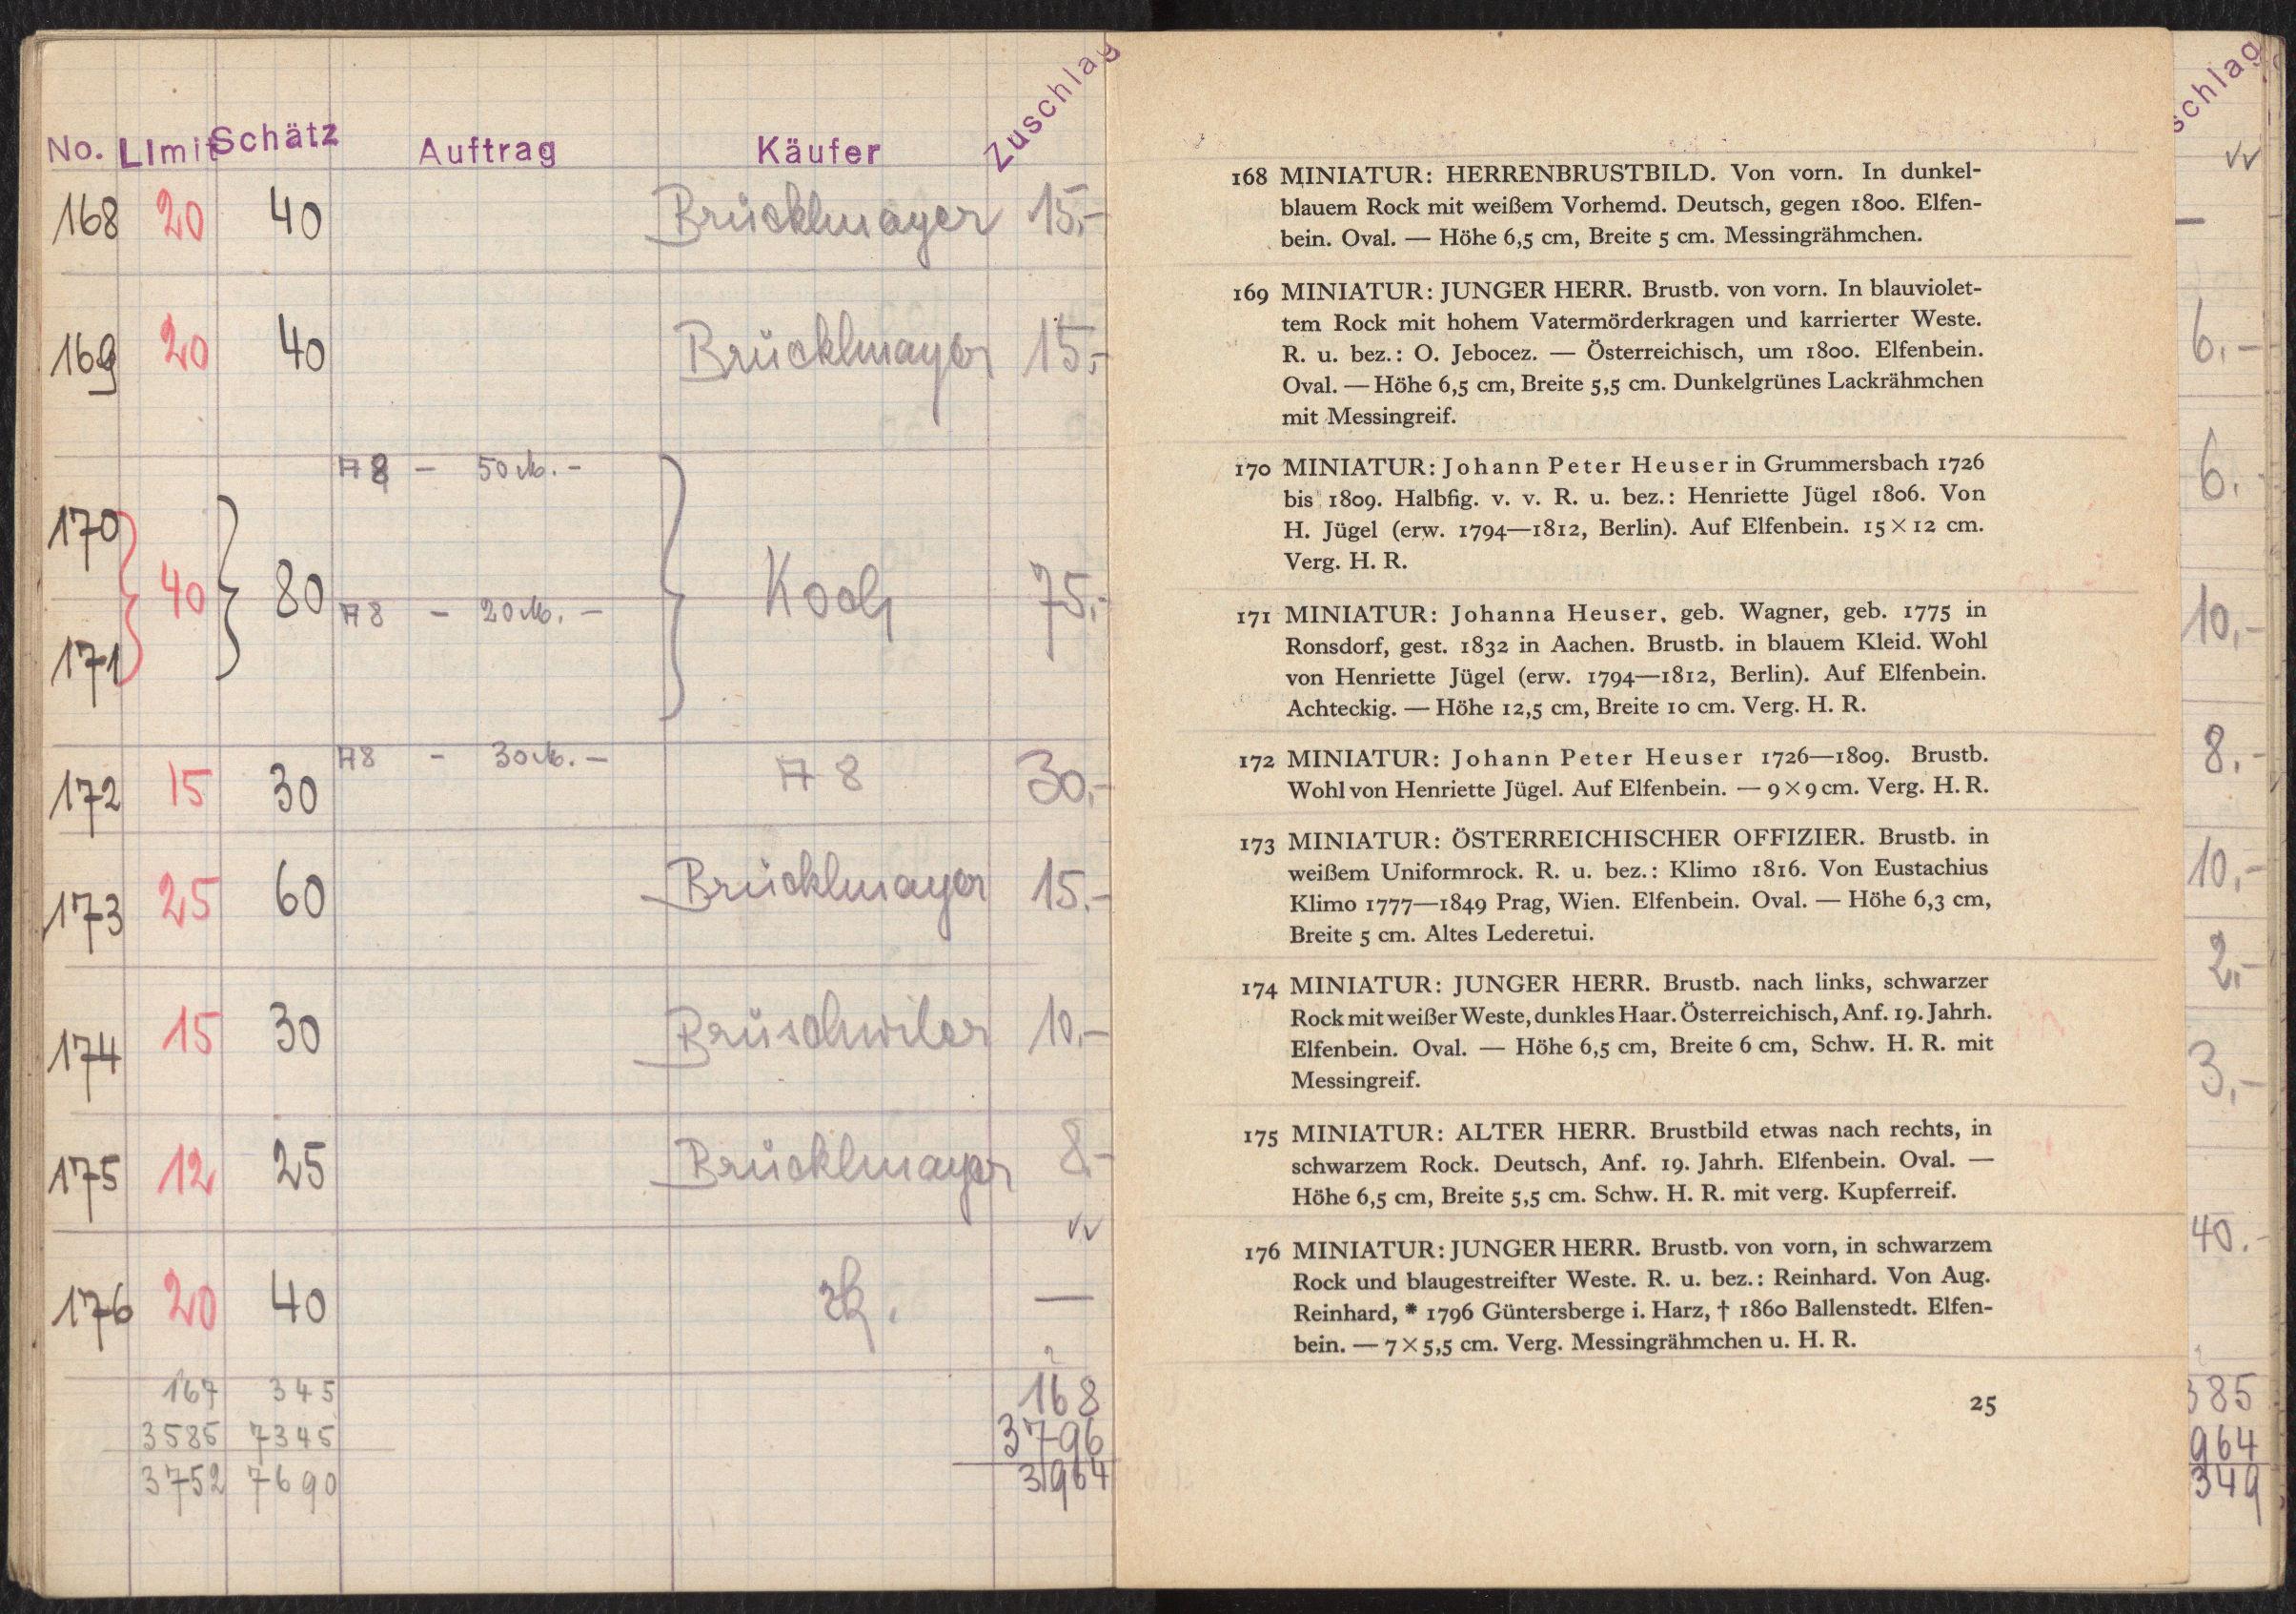 No. LImit Schätz Auftrag Käufer Zuschlag
168 20 40 Brücklmayer 15,-
169 20 40 Brücklmayer 15,-
A8 - 50 M. -
170
40 80 Koch 75,-
A8 - 20 M. -
171
A8 - 30 M. -
172 15 30 A8 30,-
173 25 60 Brücklmayer 15.-
174 15 30 Brüschwiler 10,-
175 12 25 Brücklmayer 8,-
176 20 40 rk. —
167 345 168
3585 7345 3796
3752 7690 3964
168 MINIATUR: HERRENBRUSTBILD. Von vorn. In dunkel-
blauem Rock mit weißem Vorhemd. Deutsch, gegen 1800. Elfen-
bein. Oval. — Höhe 6,5 cm, Breite 5 cm. Messingrähmchen.
169 MINIATUR: JUNGER HERR. Brustb. von vorn. In blauviolet-
tem Rock mit hohem Vatermörderkragen und karrierter Weste.
R. u. bez.: O. Jebocez. — Österreichisch, um 1800. Elfenbein.
Oval. — Höhe 6,5 cm, Breite 5,5 cm. Dunkelgrünes Lackrähmchen
mit Messingreif.
170 MINIATUR: Johann Peter Heuser in Grummersbach 1726
bis 1809. Halbfig. v. v. R. u. bez.: Henriette Jügel 1806. Von
H. Jügel (erw. 1794—1812, Berlin). Auf Elfenbein. 15×12 cm.
Verg. H. R.
171 MINIATUR: Johanna Heuser, geb. Wagner, geb. 1775 in
Ronsdorf, gest. 1832 in Aachen. Brustb. in blauem Kleid. Wohl
von Henriette Jügel (erw. 1794—1812, Berlin). Auf Elfenbein.
Achteckig. — Höhe 12,5 cm, Breite 10 cm. Verg. H. R.
172 MINIATUR: Johann Peter Heuser 1726—1809. Brustb.
Wohl von Henriette Jügel. Auf Elfenbein. — 9×9 cm. Verg. H. R.
173 MINIATUR: ÖSTERREICHISCHER OFFIZIER. Brustb. in
weißem Uniformrock. R. u. bez.: Klimo 1816. Von Eustachius
Klimo 1777—1849 Prag, Wien. Elfenbein. Oval. — Höhe 6,3 cm,
Breite 5 cm. Altes Lederetui.
174 MINIATUR: JUNGER HERR. Brustb. nach links, schwarzer
Rock mit weißer Weste, dunkles Haar. Österreichisch, Anf. 19. Jahrh.
Elfenbein. Oval. — Höhe 6,5 cm, Breite 6 cm, Schw. H. R. mit
Messingreif.
175 MINIATUR: ALTER HERR. Brustbild etwas nach rechts, in
schwarzem Rock. Deutsch, Anf. 19. Jahrh. Elfenbein. Oval. —
Höhe 6,5 cm, Breite 5,5 cm. Schw. H. R. mit verg. Kupferreif.
176 MINIATUR: JUNGER HERR. Brustb. von vorn, in schwarzem
Rock und blaugestreifter Weste. R. u. bez.: Reinhard. Von Aug.
Reinhard, * 1796 Güntersberge i. Harz, † 1860 Ballenstedt. Elfen-
bein. — 7×5,5 cm. Verg. Messingrähmchen u. H. R.
25
schlag
—
6.-
6.
10,-
8.-
10,-
2,-
3,-
40.-
385
964
349